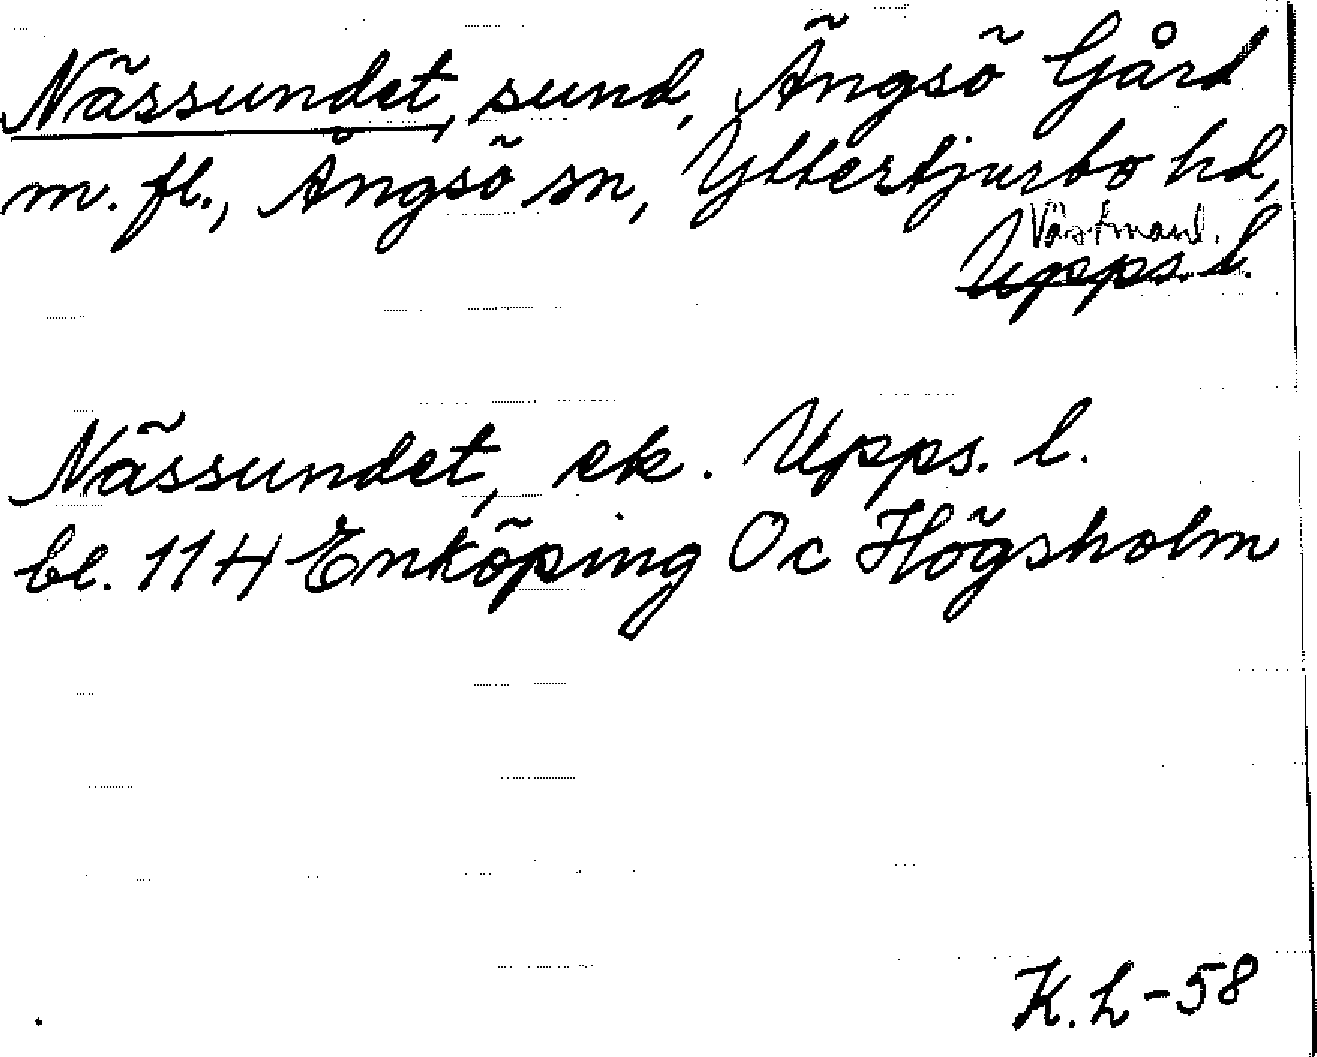 Nässundet, sund, Ängsö Gård
m. fl., Ängsö sn, Yttertjurbo hd,
Västmanl.
Upps. l.
Nässundet, ek. Upps. l.
bl. 114 Enköping Oc Högsholm
K. L-58